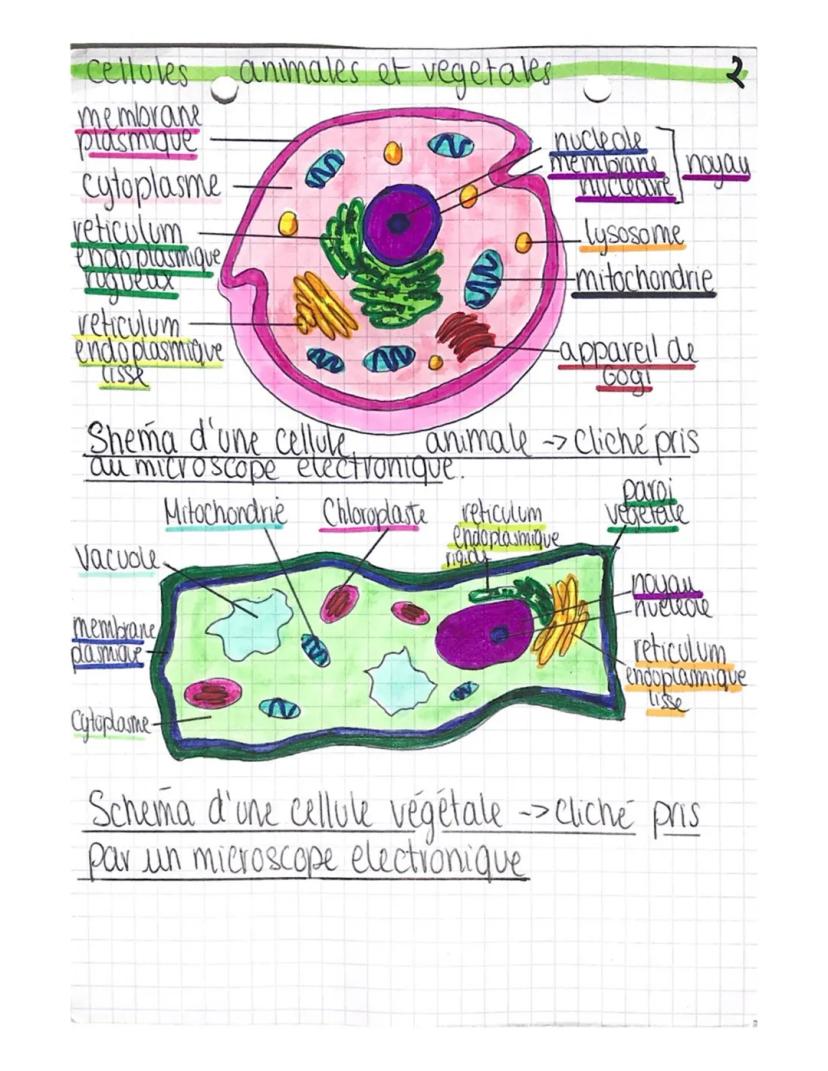 cellules animales et vegetales 2
membrane
plasmique
cytoplasme
reticulum
endoplasmique
rugueux
reticulum
endoplasmique
lisse
nucleole
membrane
nucleaire
noyau
lysosome
mitochondrie
appareil de
Gogi
Shema d'une cellule animale -> Cliché pris
au microscope electronique.
Mitochondrie
Chloroplaste
reticulum
endoplasmique
paroi
végetale
Vacuole
membrane
plasmique
Cytoplasme
noyau
nucleole
reticulum
endoplasmique
lisse
Schema d'une cellule végétale -> cliché pris
par un microscope electronique